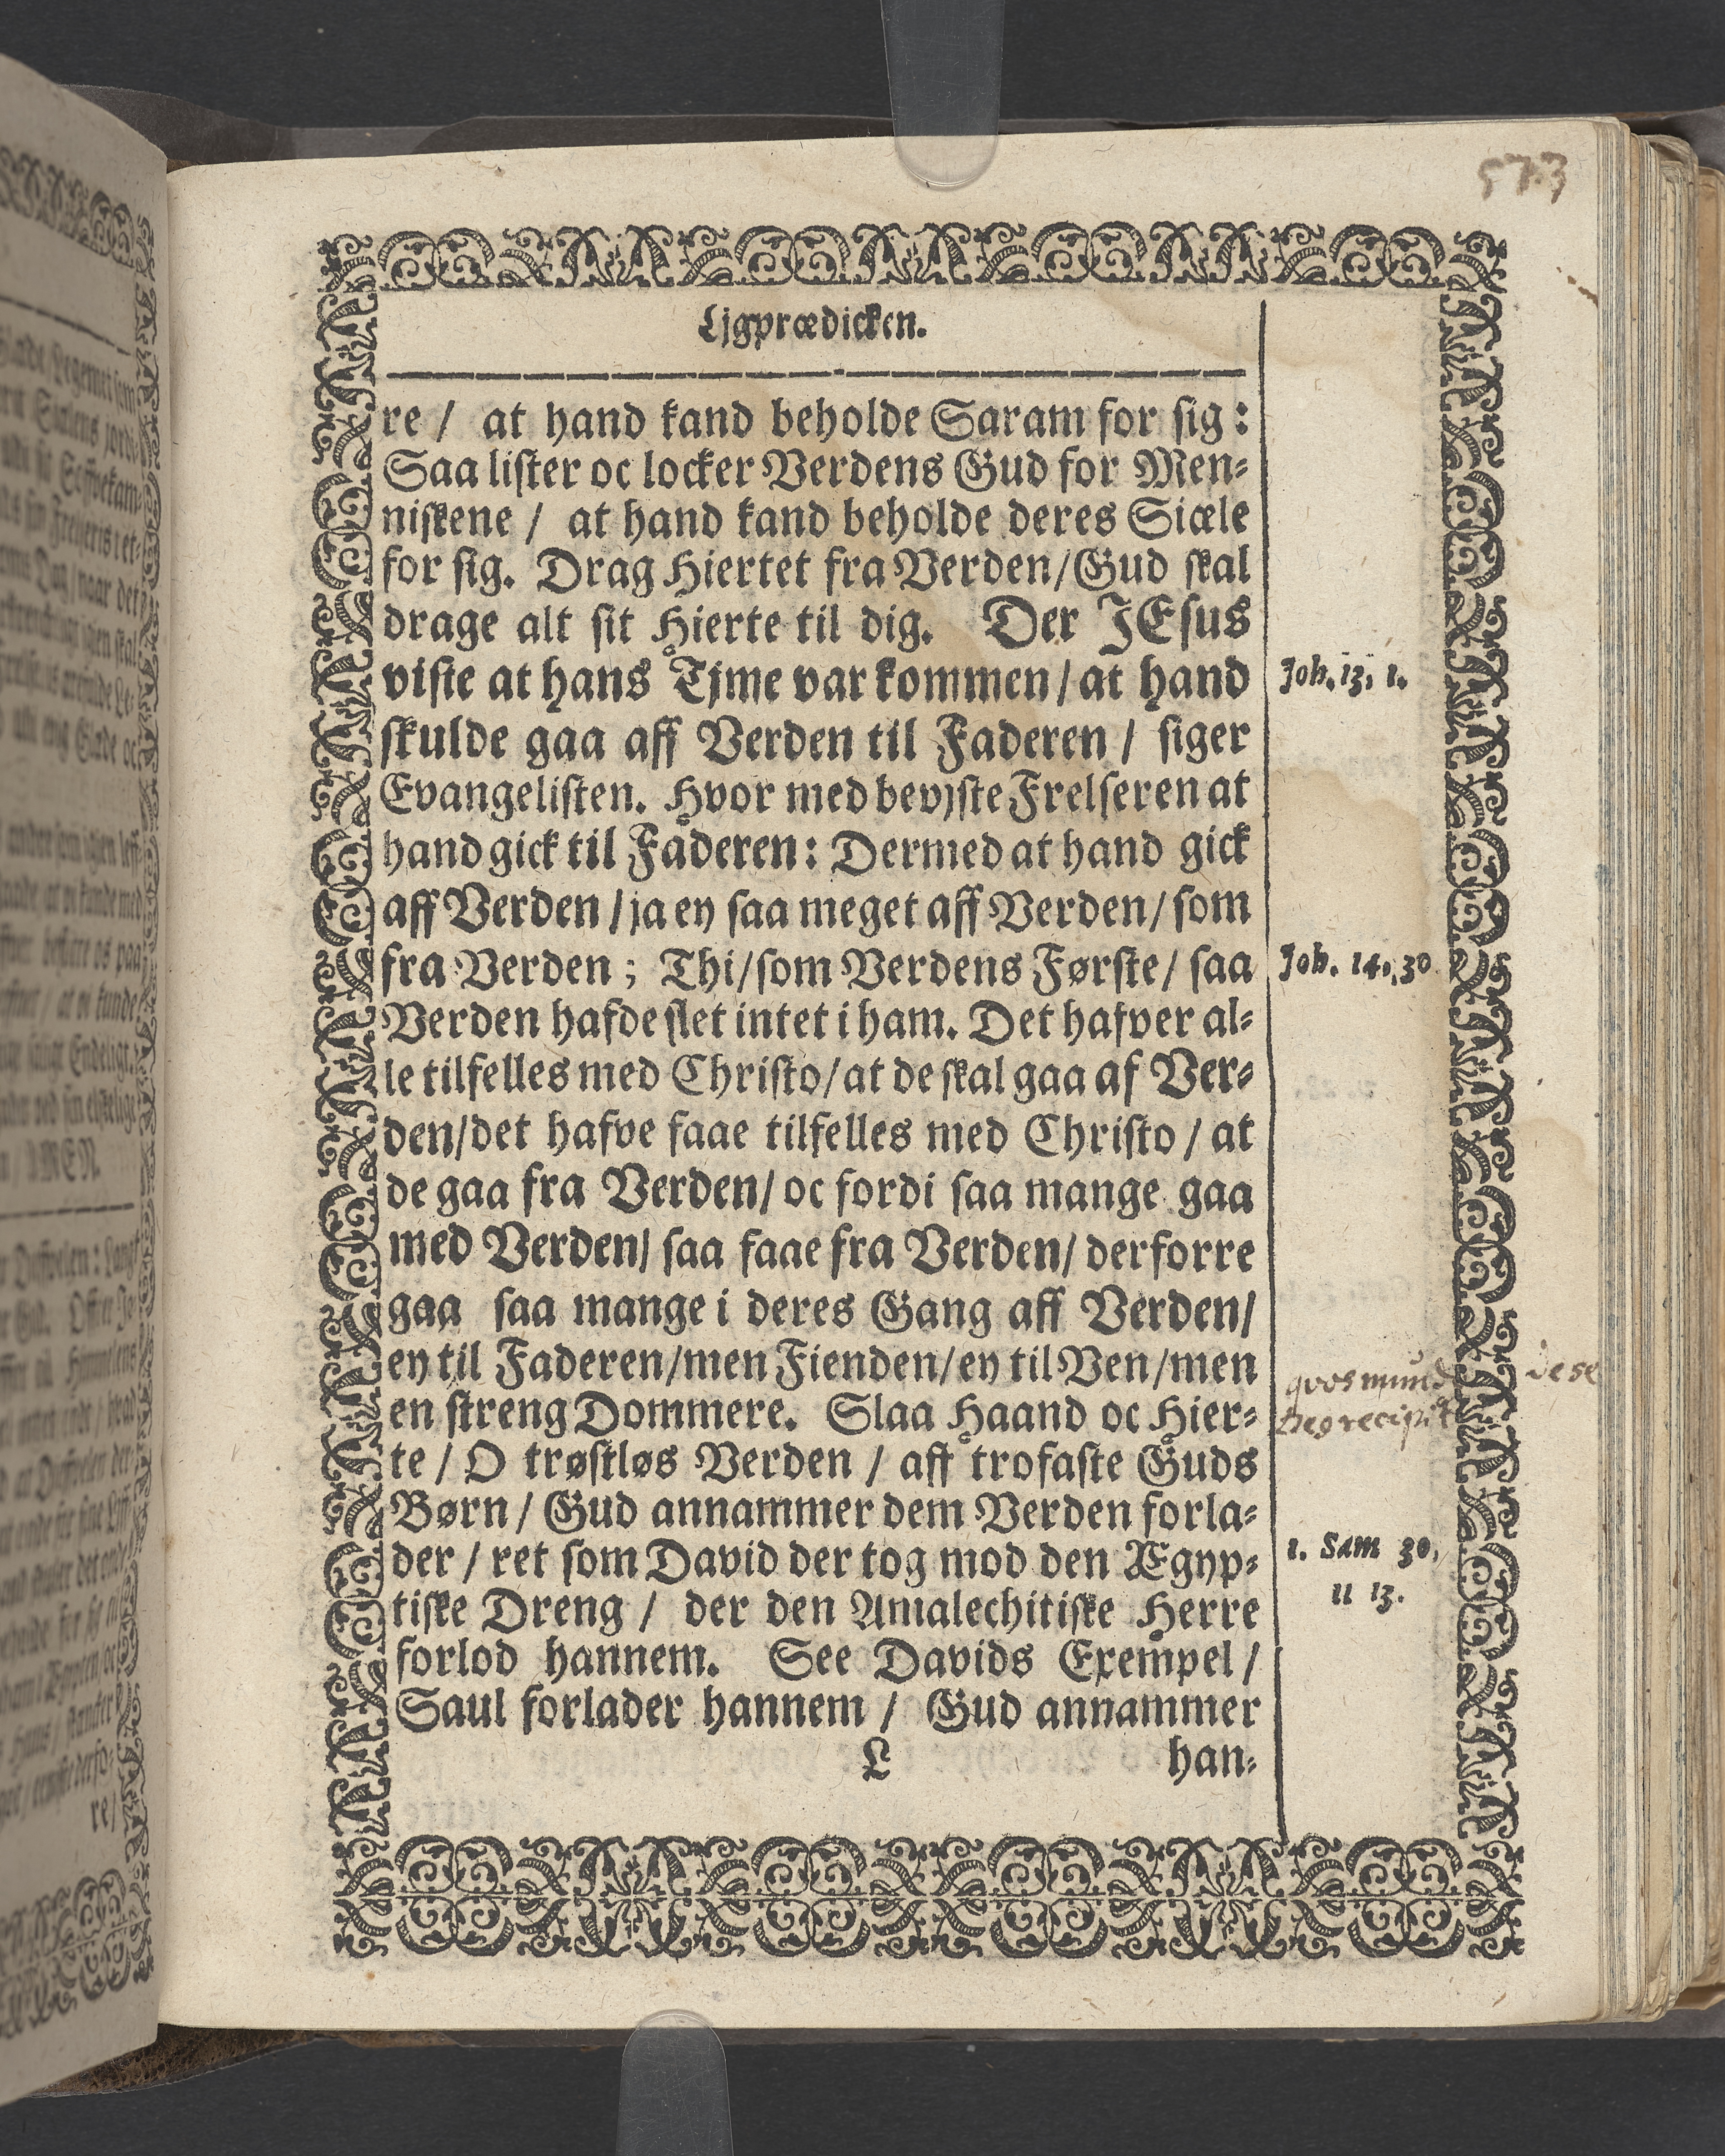 573
Ljgprædicken.
re / at hand kand beholde Saram for sig :
Saa lister oc locker Verdens Gud for Men-
niskene / at hand kand beholde deres Siæle
for sig. Drag Hiertet fra Verden/Gud skal
drage alt sit Hierte til dig. Der JEsus
viste at hans Tjme var kommen / at hand
skulde gaa aff Verden til Faderen / siger
Evangelisten. Hvor med bevjste Frelseren at
hand gick til Faderen : Dermed at hand gick
aff Verden / ja ey saa meget aff Verden / som
fra Verden ; Thi/som Verdens Første / saa
Verden hafde slet intet i ham. Det hafver al-
le tilfelles med Christo/at de skal gaa af Ver-
den/det hafve faae tilfelles med Christo / at
de gaa fra Verden/ oc fordi saa mange gaa
med Verden/ saa faae fra Verden/ derforre
gaa saa mange i deres Gang aff Verden/
ey til Faderen/men Fienden/ey til Ven/men
en streng Dommere. Slaa Haand oc Hier-
te / O trøstløs Verden / aff trofaste Guds
Børn / Gud annammer dem Verden forla-
der / ret som David der tog mod den Ægyp-
tiske Dreng / der den Amalechitiske Herre
forlod hannem. See Davids Exempel /
Saul forlader hannem / Gud annammer
L han-
Joh. 13, 1.
Joh. 14, 30
qvos mund dese
Deg recipit
1. Sam 30,
11 13.